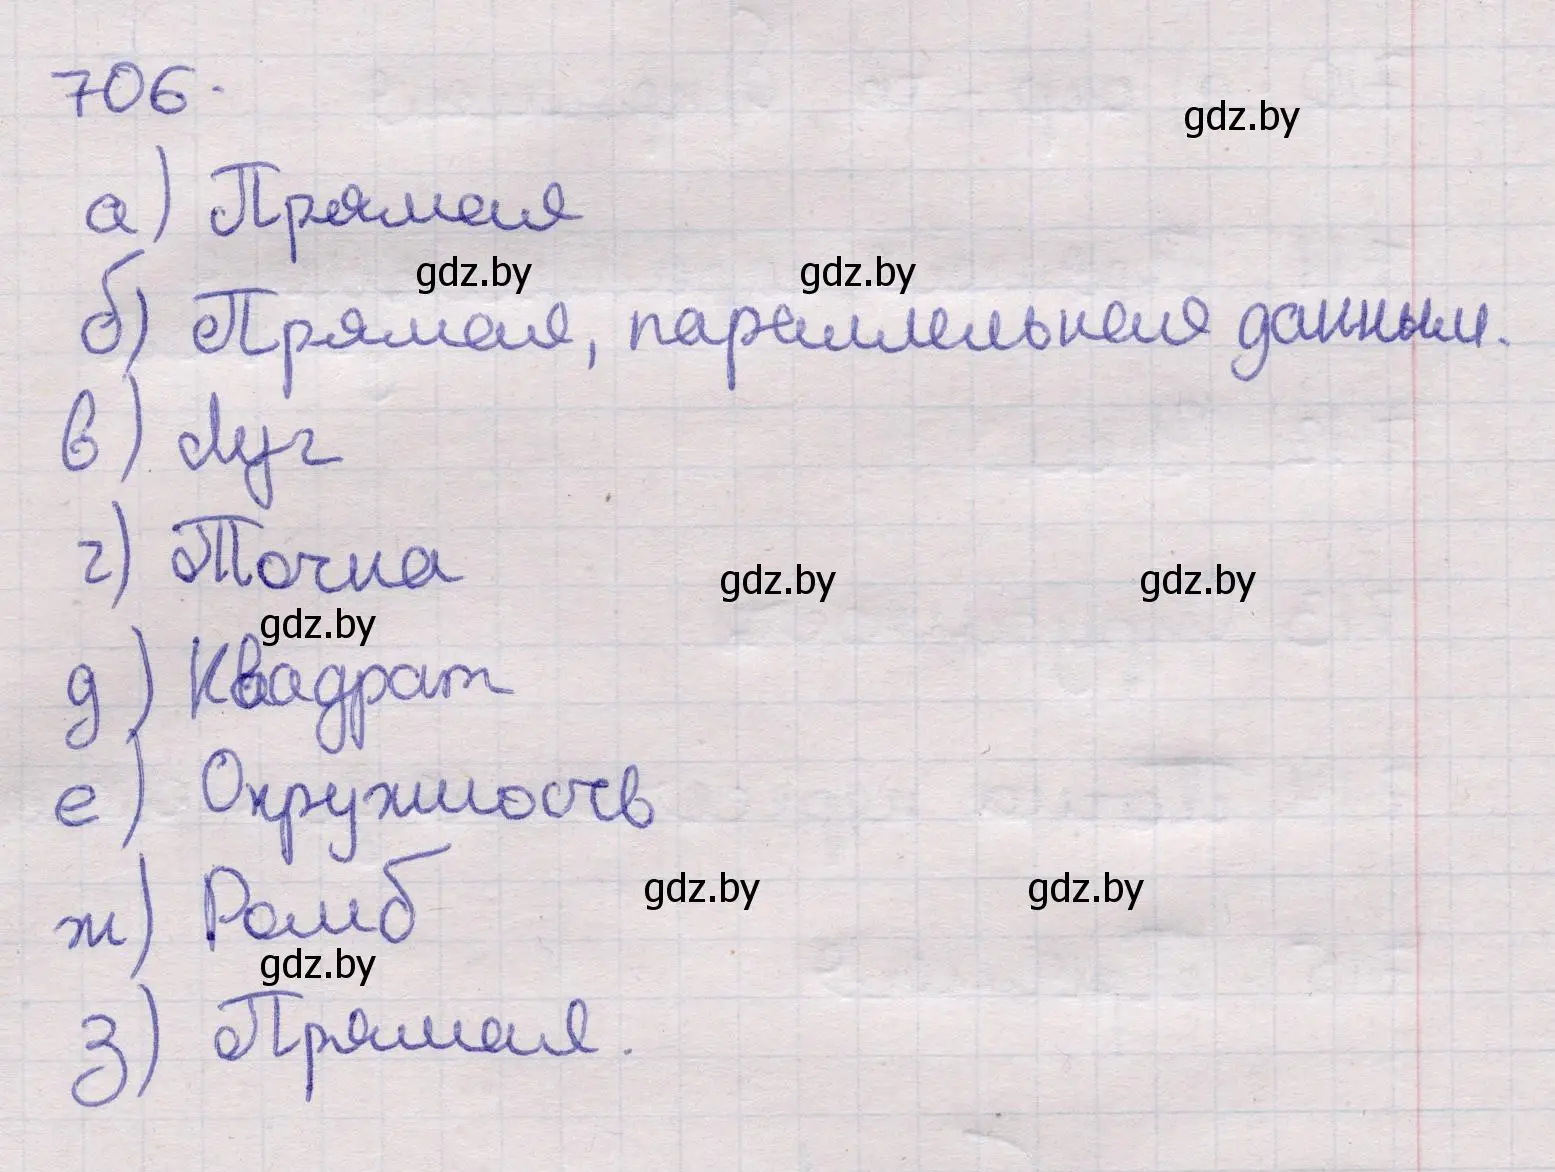 706.
gdz.by
а) Прямая
gdz.by gdz.by
б) Прямая, параллельная данным.
в) Луч
г) Точка
gdz.by gdz.by
gdz.by
д) Квадрат
е) Окружность
ж) Ромб
gdz.by gdz.by
gdz.by
з) Прямая.